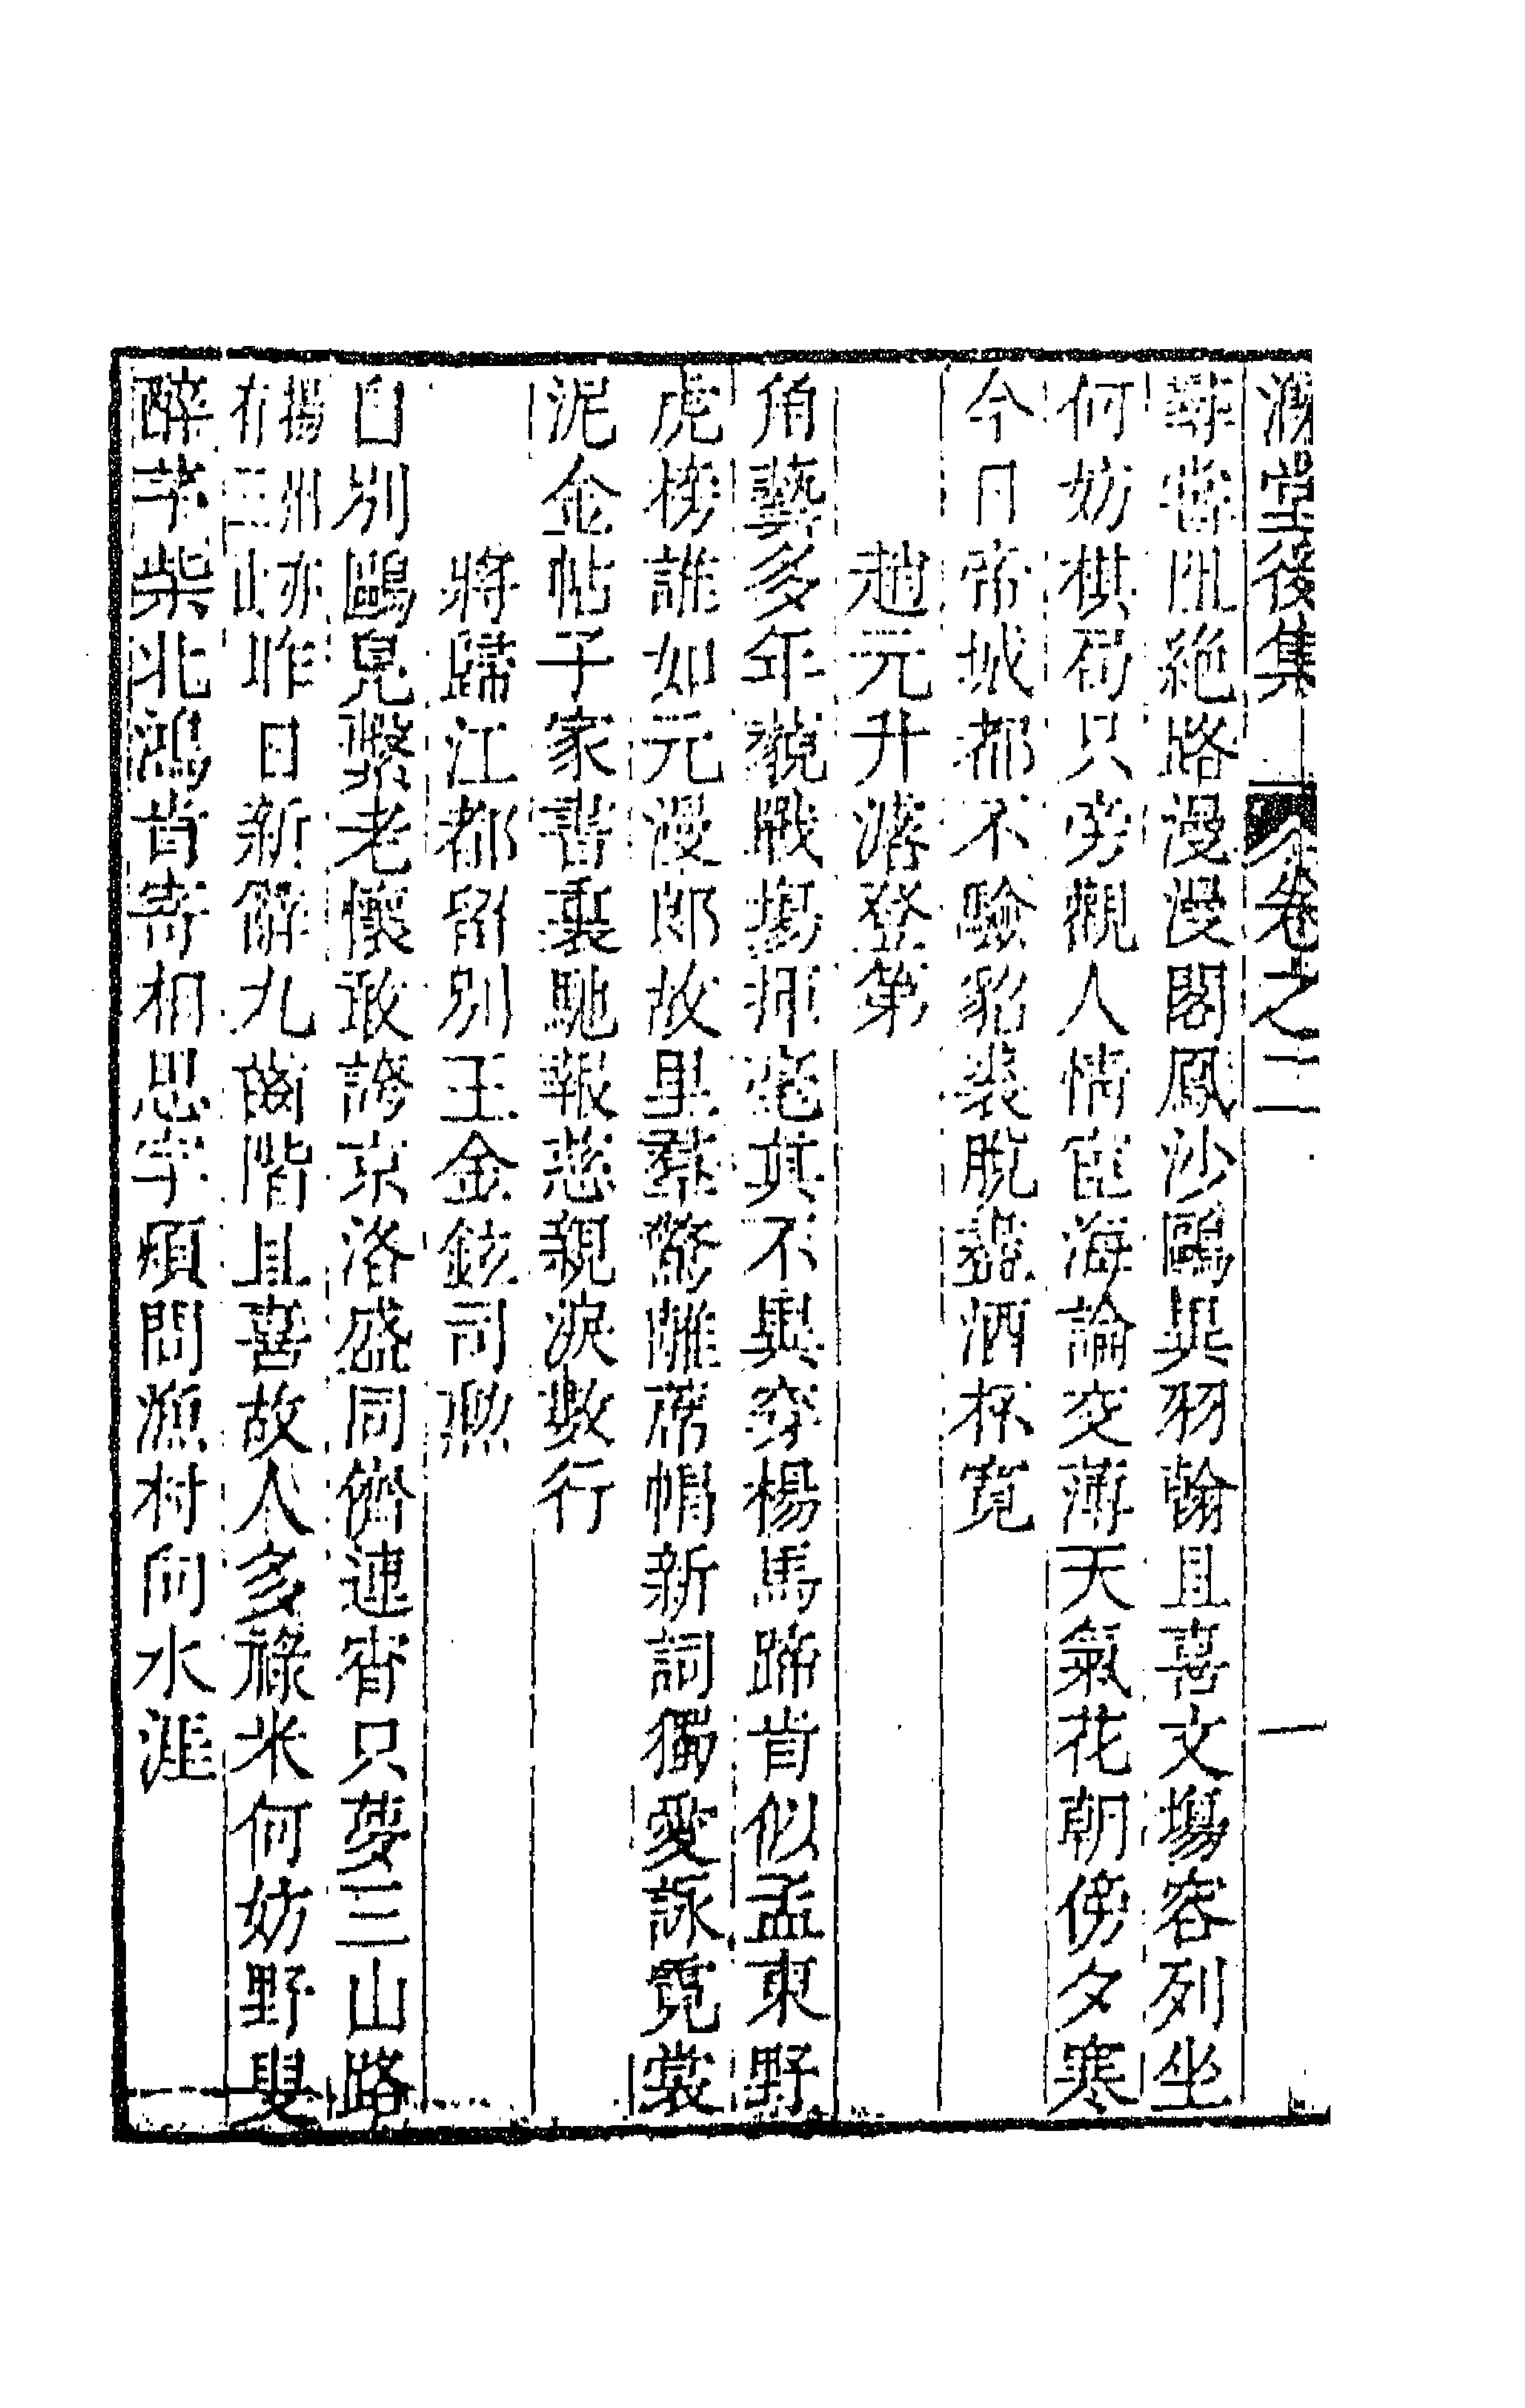 溉堂後集 卷之二 一
尋常岊絶路漫漫閣鳳沙鷗與羽翰且喜文塲容列坐
何妨棋局只旁觀人情宦海論交薄天氣花朝傍夕寒
今日帝城都不驗貂裘脫盡酒杯寬
趙元升落登第
角藝多年藐戰塲揮毫真不異穿楊馬蹄肯似孟東野
虎榜誰如元漫郎故里羣驚離蓆帽新詞獨愛詠霓裳
泥金帖子家書裏馳報慈親淚數行
將歸江都留別王金鉉司勲
自別鷗鳧繫老懷敢誇京洛盛同儕連宵只夢三山路
揚州亦有三山昨日新辭九陌階且喜故人多祿米何妨野叟
醉芋柴北鴻肯寄相思字煩問漁村向水涯